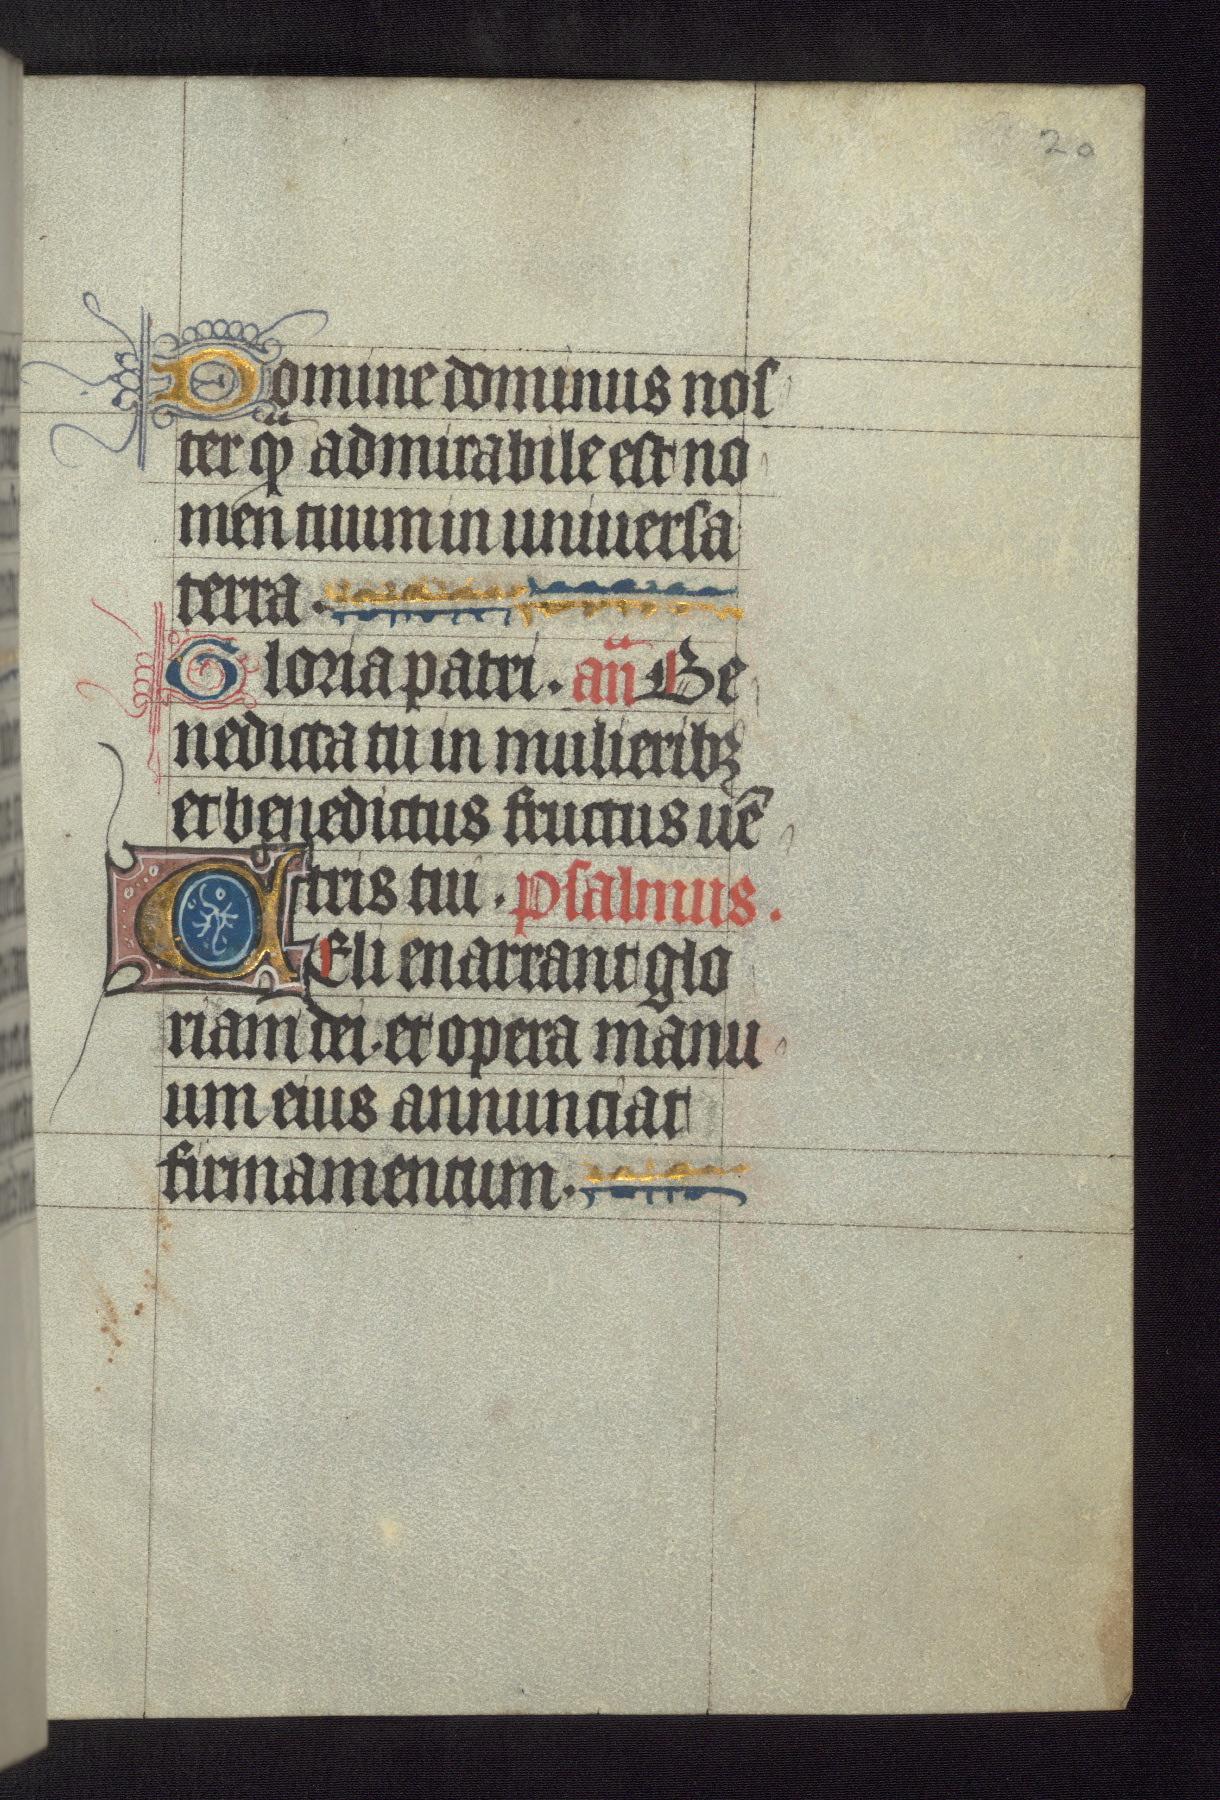 20
Domine dominus nos
ter qͫ admirabile est no
men tuum in uniuersa
terra.
Gloria patri. an̄ Be
nedicta tu in mulieribꝫ
et benedictus fructus uē
tris tui. psalmus.
CEli enarrant glo
riam dei. et opera manu
um eius annunciat
firmamentum.